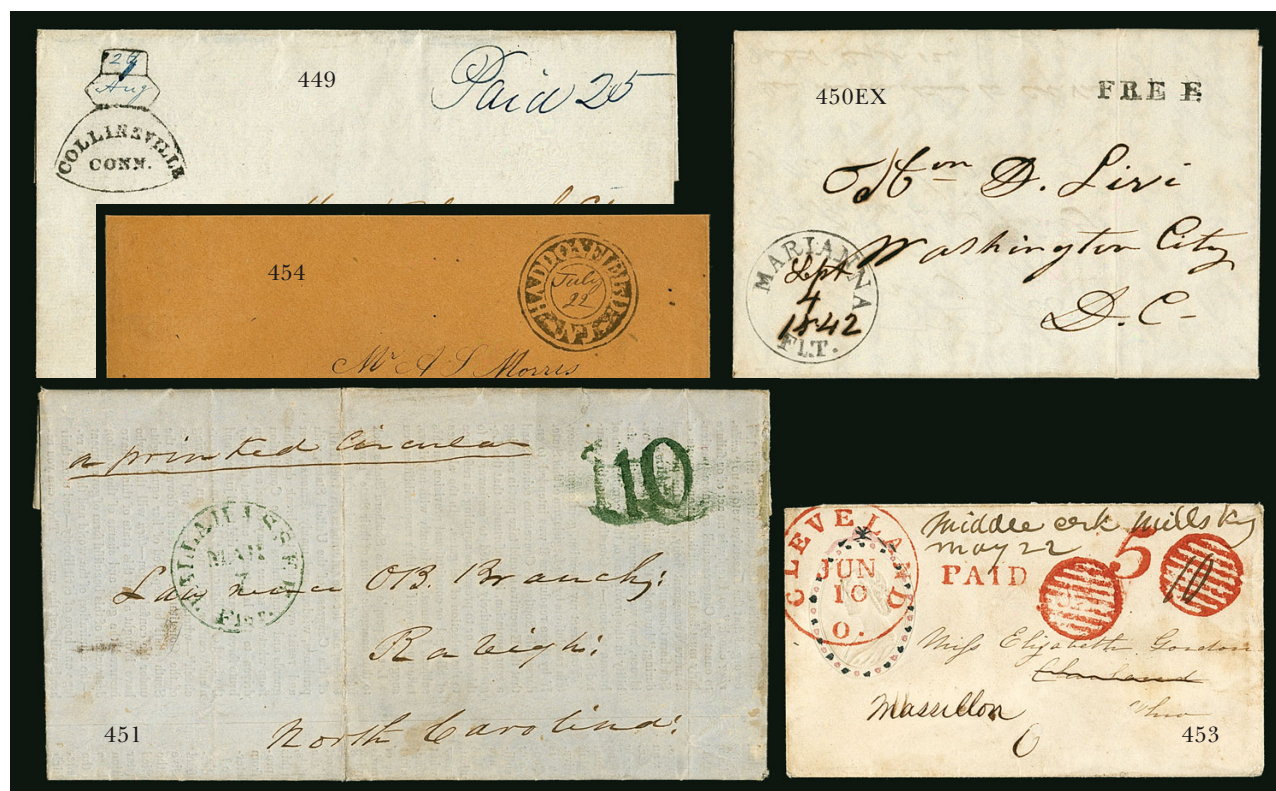 29
Aug
COLLINSVILLE
CONN.
449
Paid 25
454
HADDONFIELD
N.J.
July
22
Mr A S Morris
450EX
FREE
Hon D. Livi
Washington City
D. C-
MARIANNA
Sept
4
1842
Fl.T.
a printed Circular
110
TALLAHASSEE
MAR
7
Flor.
Lawrence OB. Branch;
Raleigh:
North Carolina:
451
CLEVELAND
JUN
10
O.
Middle cerk Mills Ky
May 22
PAID
5
10
Miss Elizabeth Gordon
Cleaveland
Ohio
Massillon
6
453